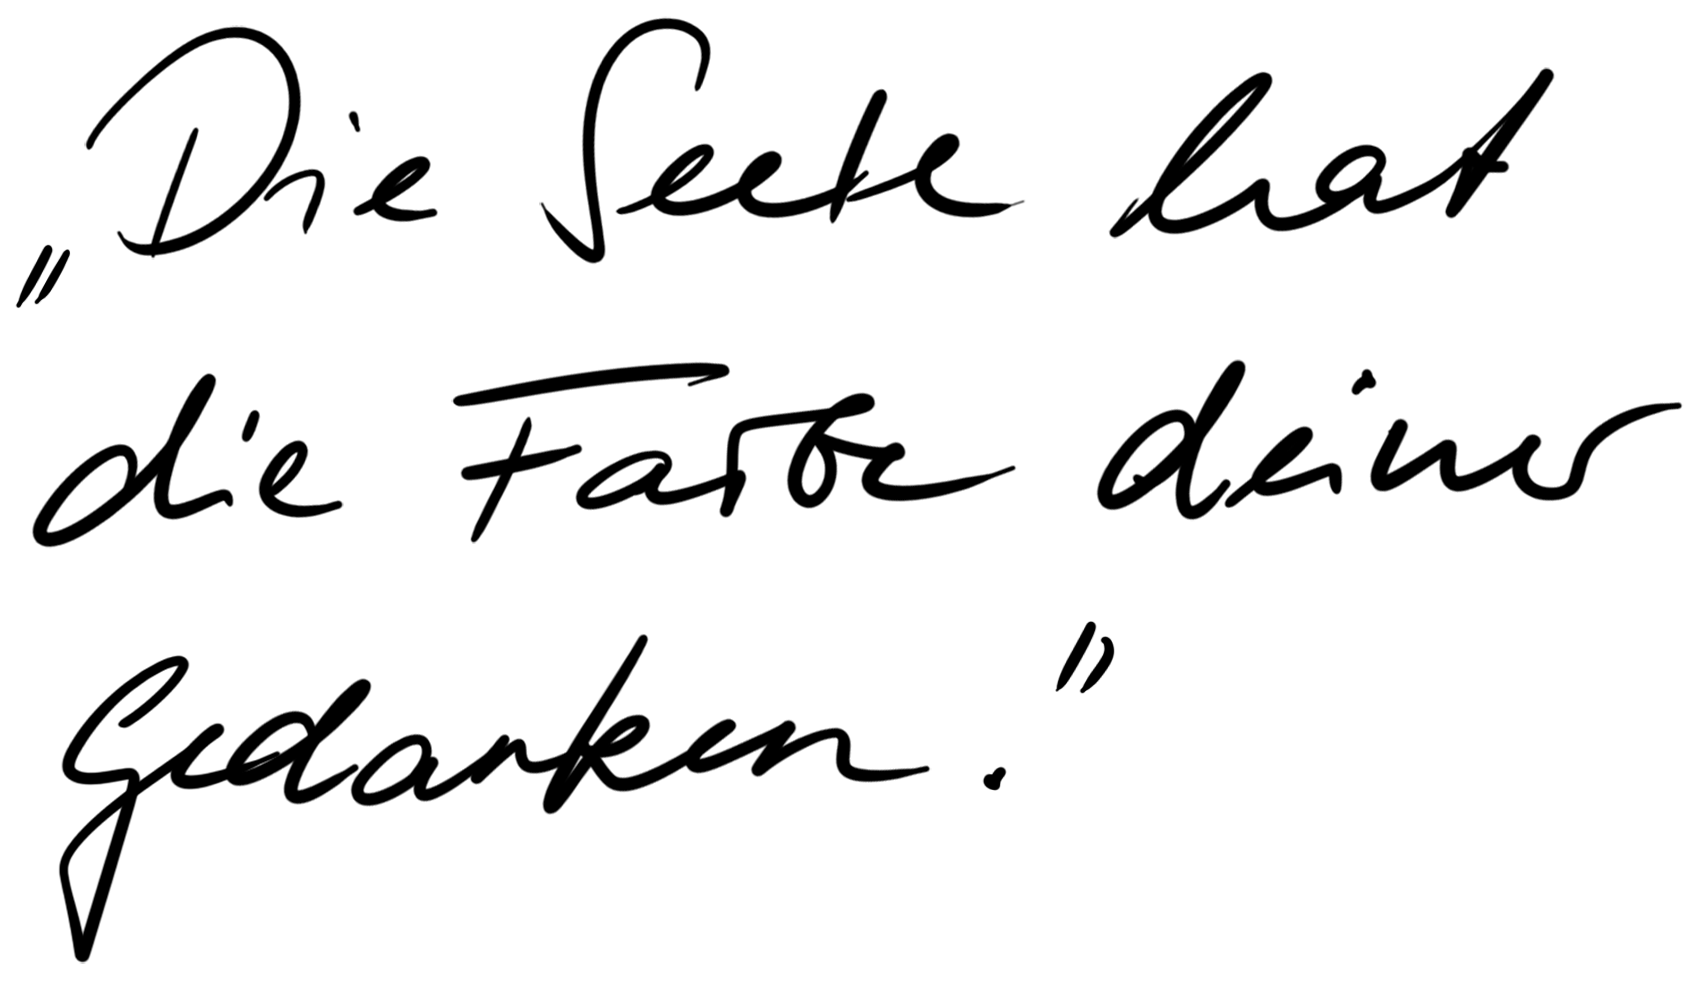 „Die Seele hat
die Farbe deiner
Gedanken."